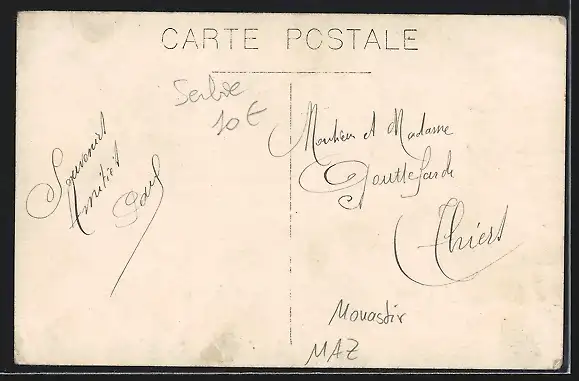 CARTE POSTALE
Serbie
10€
Souvenirs
Amitiés
Paul
Monsieur et Madame
Gouttefarde
Thiers
Monastir
MAZ